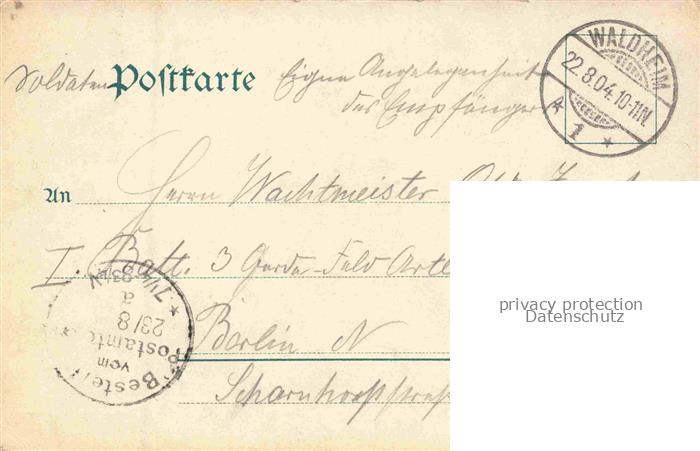 Soldaten Postkarte Eigne Angelegenheit
des Empfänger
WALDHEIM
22.8.04.10-11N.
* 1 *
An Herrn Wachtmeister
I. Batt. 3 Garde-Feld Artl
Berlin N
Scharnhorststraß
Bestellt
vom
Postamte
23/8
privacy protection
Datenschutz